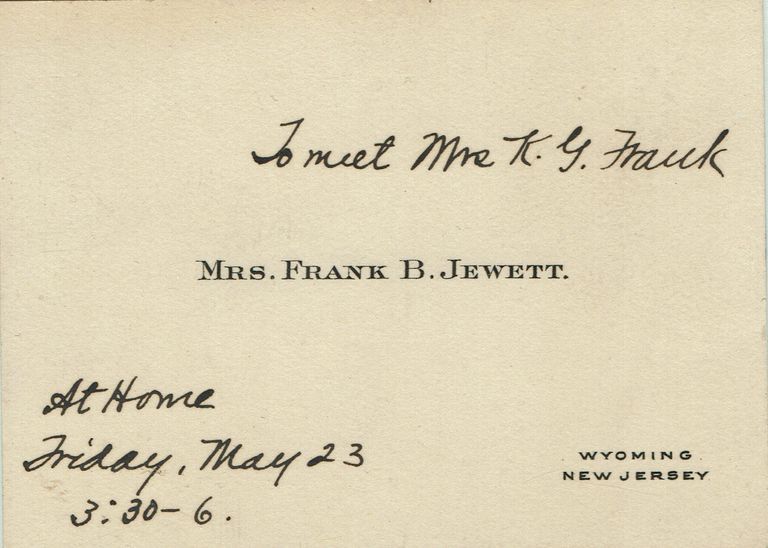 To meet Mrs K. G. Frank
MRS. FRANK B. JEWETT.
At Home
Friday, May 23
3:30-6.
WYOMING
NEW JERSEY